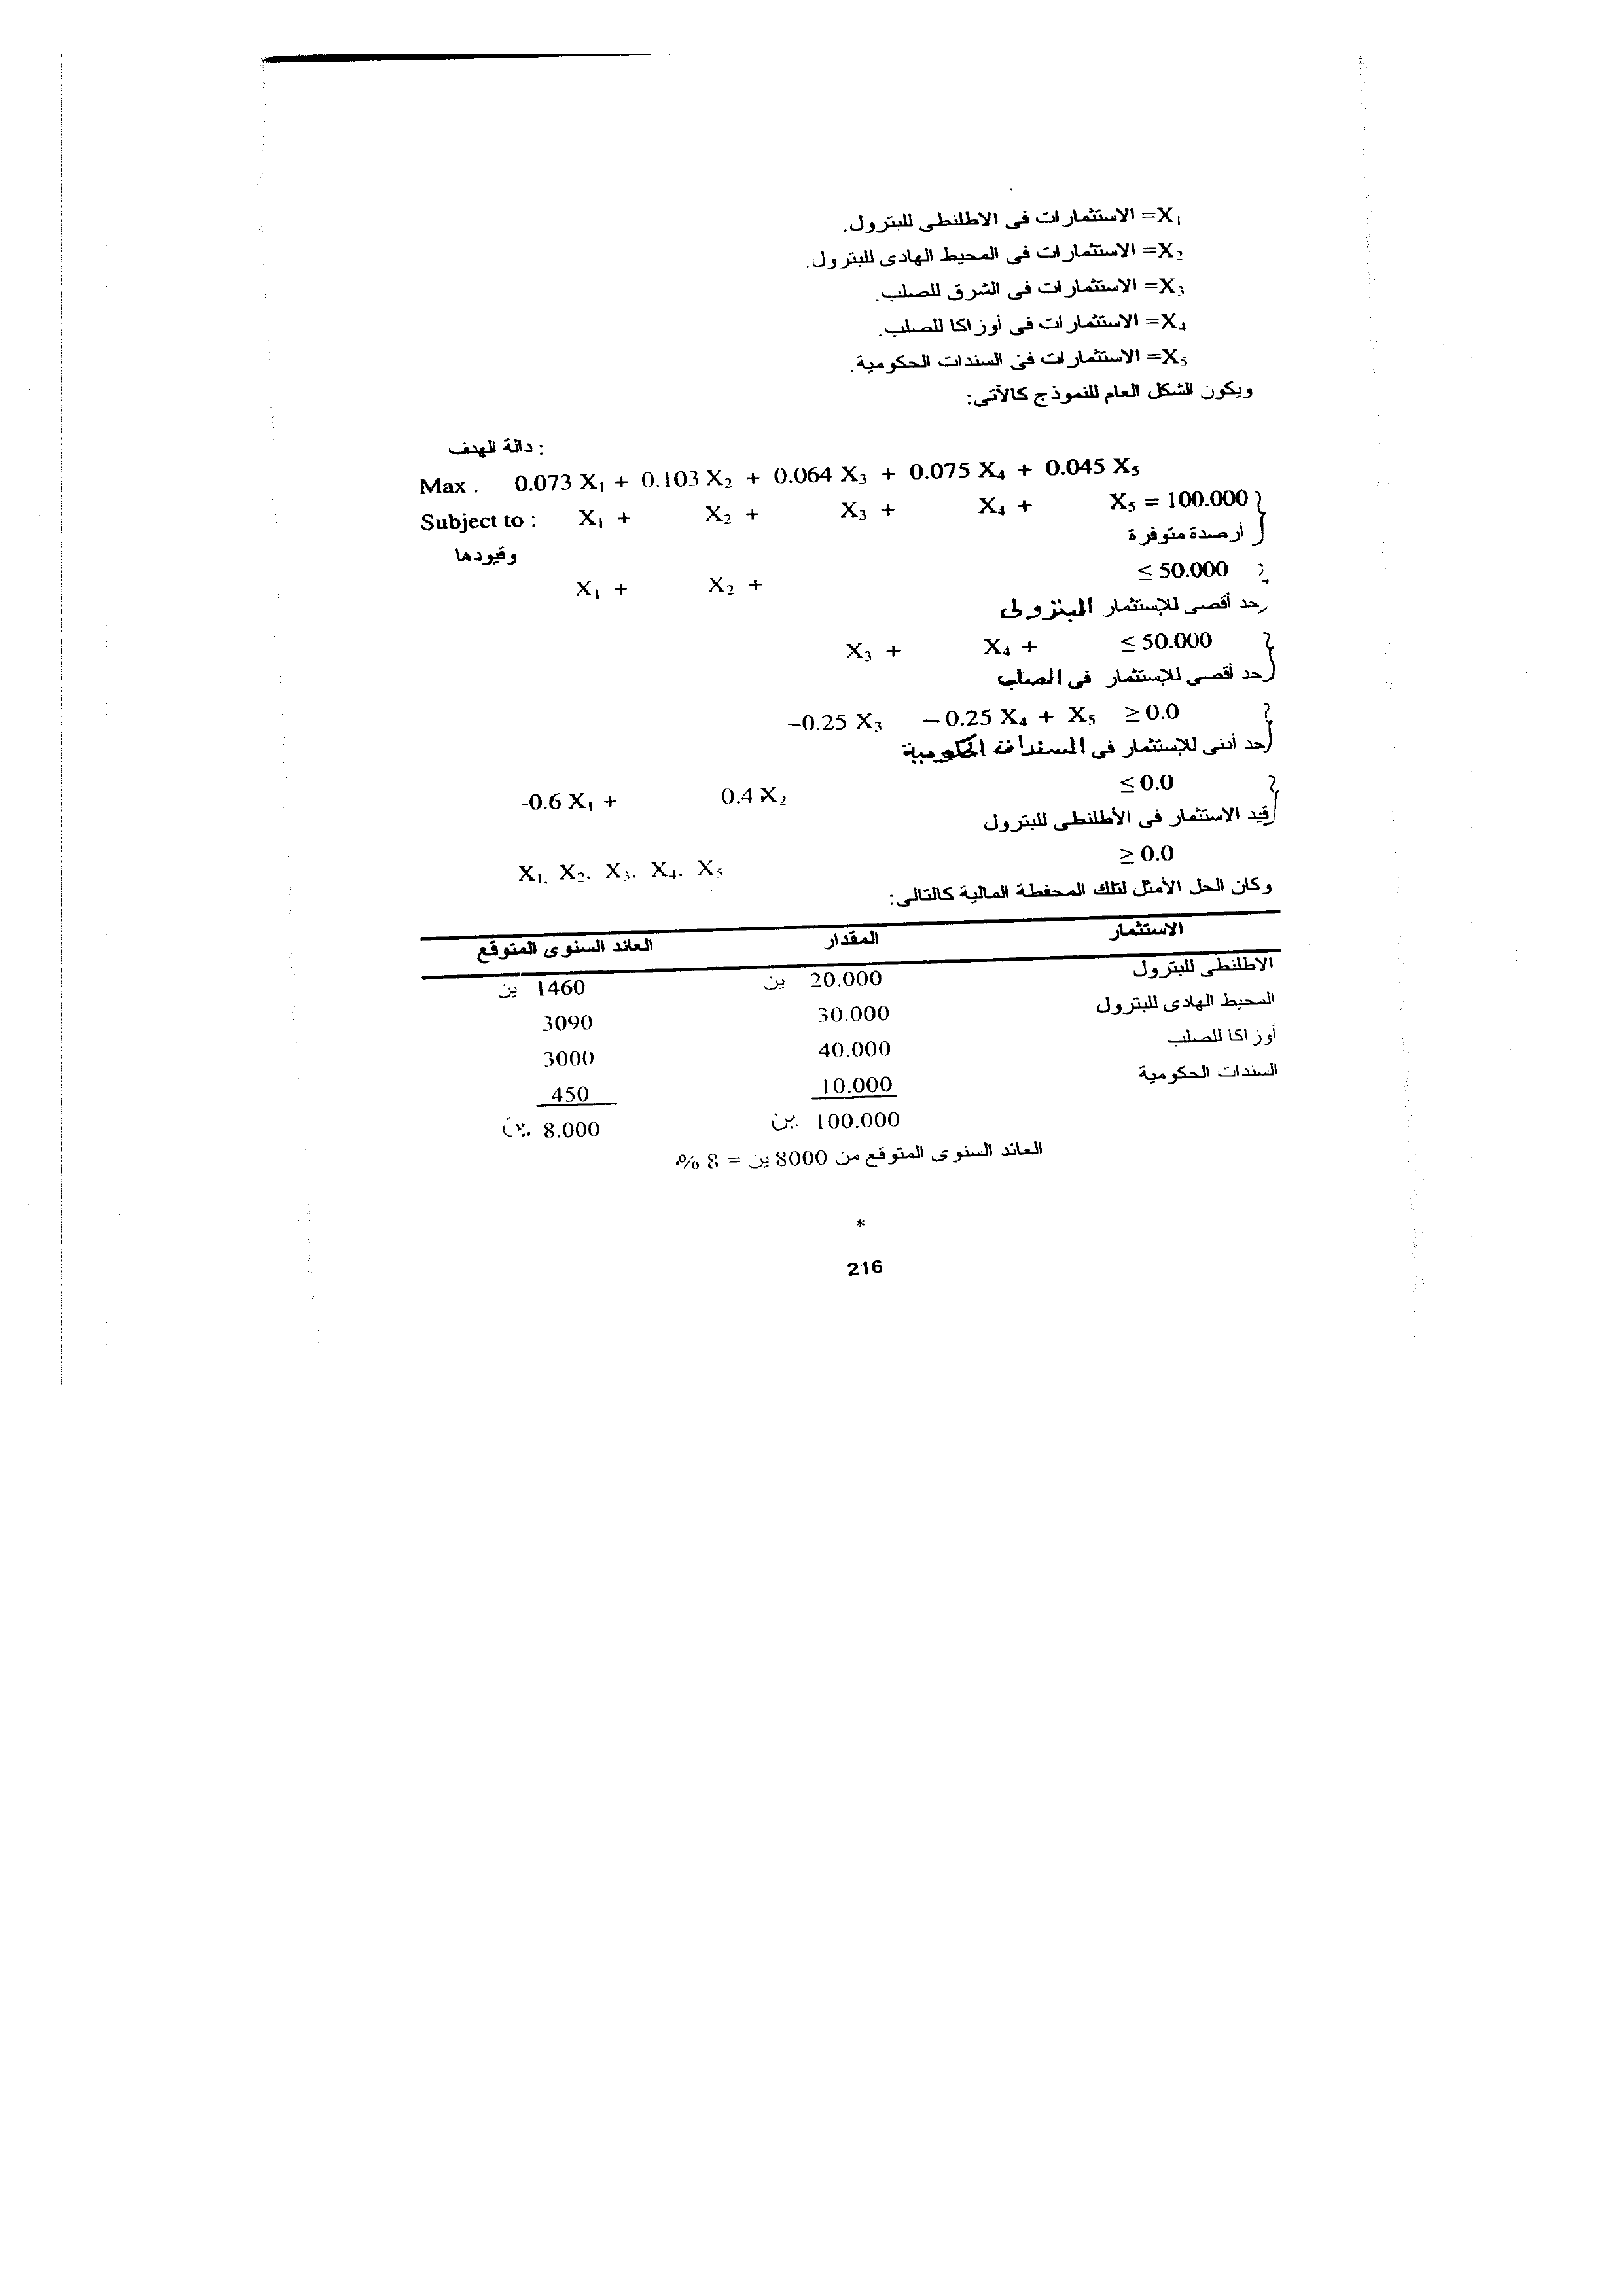 X₁= الاستثمارات فى الاطلنطى للبترول.
X₂= الاستثمارات فى المحيط الهادى للبترول.
X₃= الاستثمارات فى الشرق للصلب.
X₄= الاستثمارات فى أوزاكا للصلب.
X₅= الاستثمارات فى السندات الحكومية.
ويكون الشكل العام للنموذج كالآتى:
دالة الهدف :
Max . 0.073 X₁ + 0.103 X₂ + 0.064 X₃ + 0.075 X₄ + 0.045 X₅
Subject to : X₁ + X₂ + X₃ + X₄ + X₅ = 100.000
وقيودها أرصدة متوفرة
X₁ + X₂ + ≤ 50.000
حد أقصى للإستثمار البترولى
X₃ + X₄ + ≤ 50.000
حد أقصى للإستثمار فى الصلب
−0.25 X₃ − 0.25 X₄ + X₅ ≥ 0.0
حد أدنى للإستثمار فى السندات الحكومية
-0.6 X₁ + 0.4 X₂ ≤ 0.0
قيد الاستثمار فى الأطلنطى للبترول
X₁, X₂, X₃, X₄, X₅ ≥ 0.0
وكان الحل الأمثل لتلك المحفطة المالية كالتالى:
الاستثمار المقدار العائد السنوى المتوقع
الاطلنطى للبترول 20.000 ين 1460 ين
المحيط الهادى للبترول 30.000 3090
أوزاكا للصلب 40.000 3000
السندات الحكومية 10.000 450
100.000 ين 8.000 ين
العائد السنوى المتوقع من 8000 ين = 8 %.
*
216